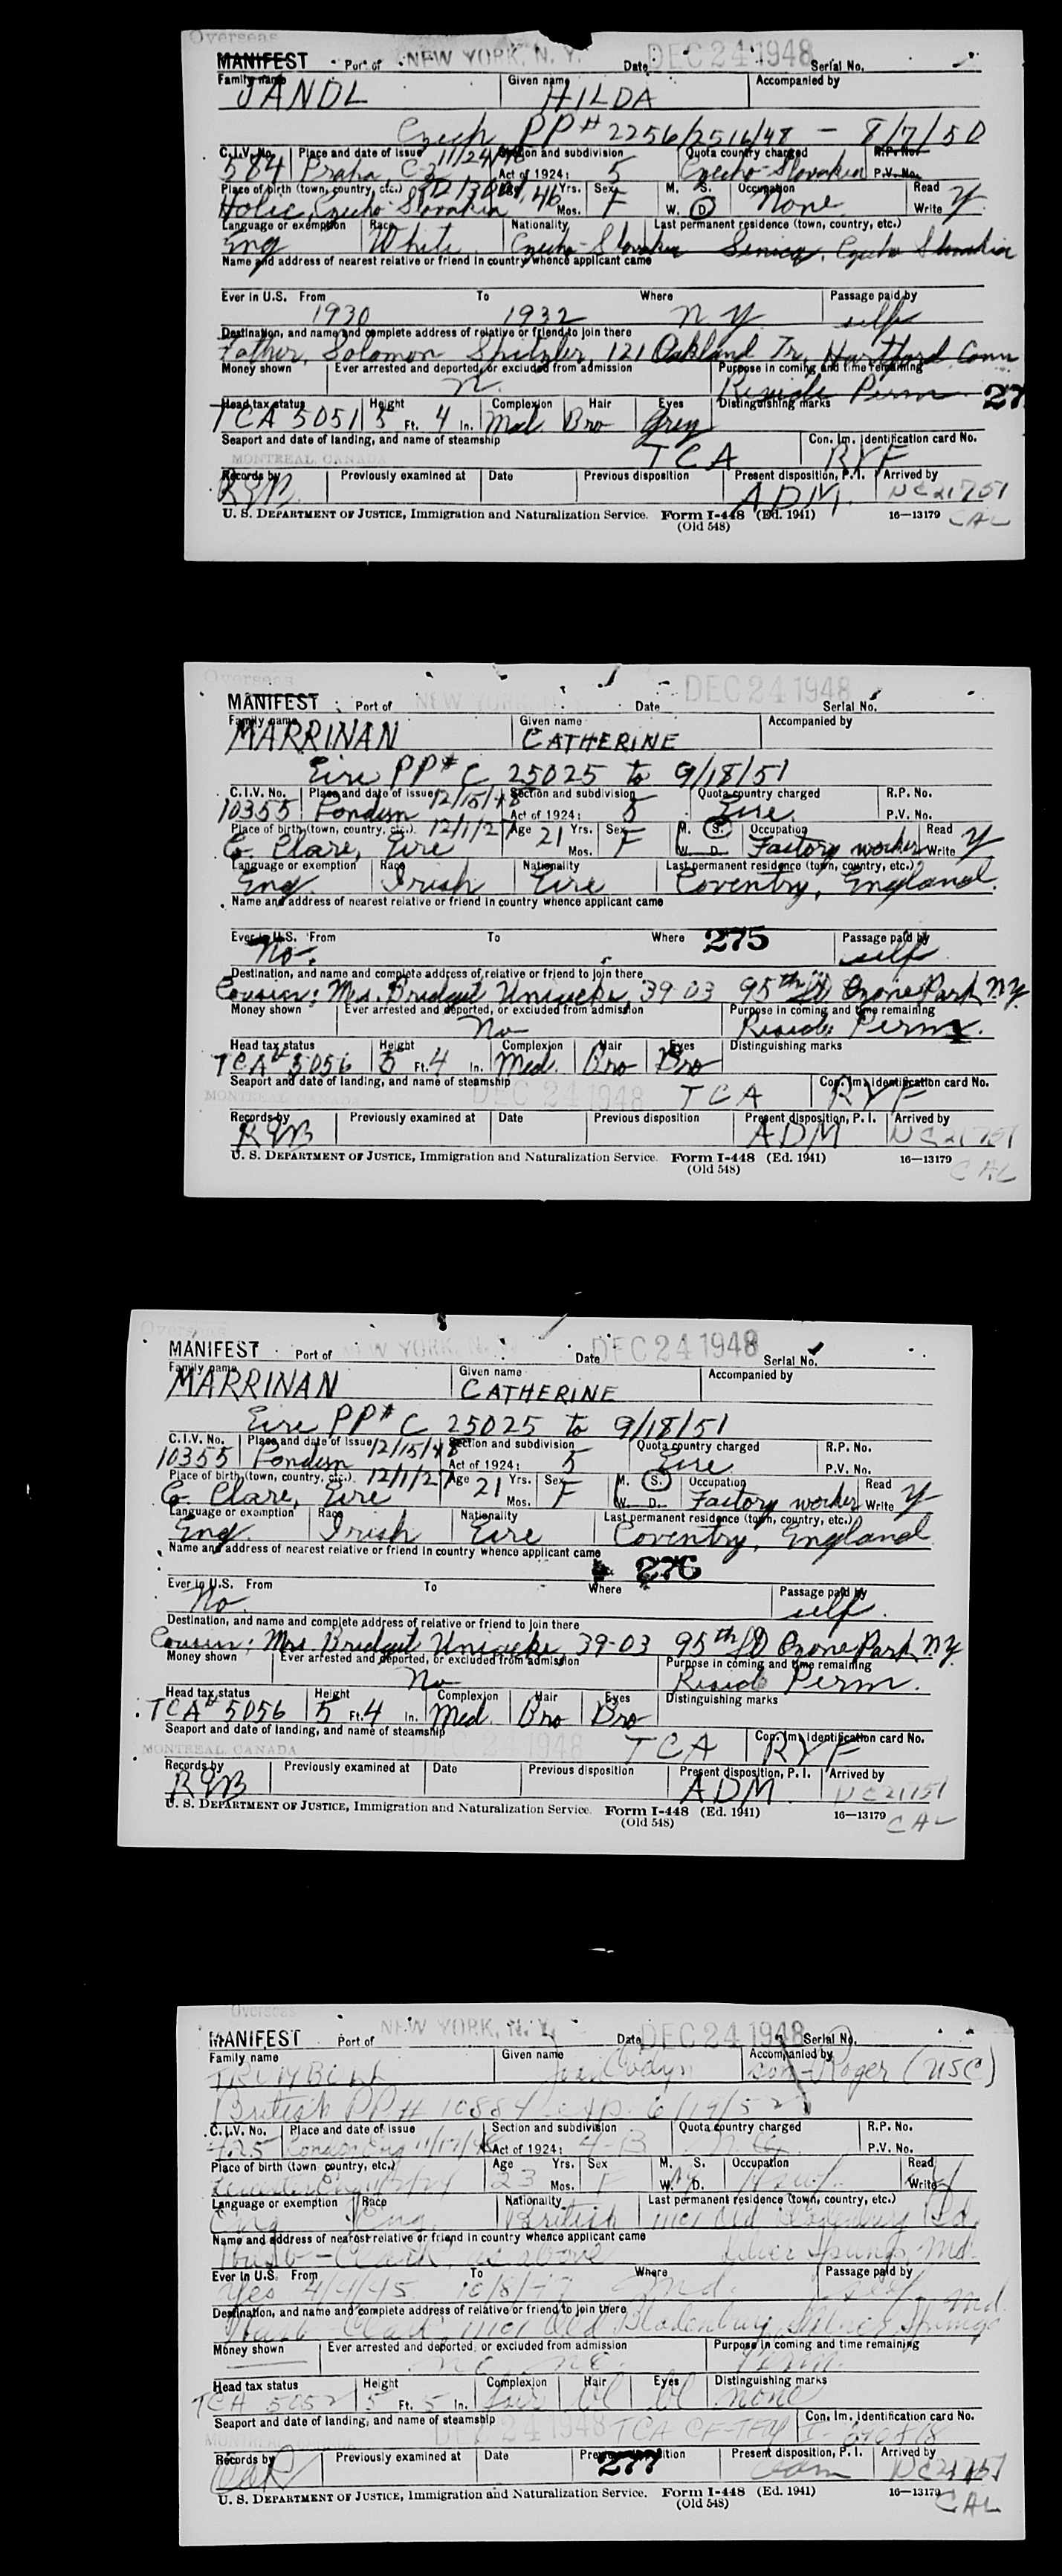 Overseas
MANIFEST Port of NEW YORK, N. Y. Date DEC 24 1948 Serial No.
Family name Given name Accompanied by
JANDL HILDA
Czech PP# 2256/2516/48 - 8/7/50
C.I.V. No. Place and date of issue 11/24/48 Section and subdivision Quota country charged R.P. No.
584 Praha, Cz Act of 1924: 5 Czecho-Slovakia P.V. No.
Place of birth (town, country, etc.) Age 46 Yrs. Sex M. S. Occupation Read
Holic, Czecho-Slovakia Mos. F W. D. None Write Y
Language or exemption Race Nationality Last permanent residence (town, country, etc.)
Eng White Czecho-Slovakia Senica, Czecho Slovakia
Name and address of nearest relative or friend in country whence applicant came
Ever in U.S. From To Where Passage paid by
1930 1932 N.Y. self
Destination, and name and complete address of relative or friend to join there
Father, Solomon 121 Oakland Tr, Hartford Conn
Money shown Ever arrested and deported, or excluded from admission Purpose in coming and time remaining
Reside Perm 27
Head tax status Height Complexion Hair Eyes Distinguishing marks
TCA 5051 5 Ft. 4 In. Med Bro Grey
Seaport and date of landing, and name of steamship Con. Im. Identification card No.
MONTREAL CANADA TCA RYF
Records by Previously examined at Date Previous disposition Present disposition, P. I. Arrived by
RGB ADM. UC21751
U. S. DEPARTMENT OF JUSTICE, Immigration and Naturalization Service. Form I-448 (Ed. 1941) 16—13179 CAL
(Old 548)
Overseas
MANIFEST Port of NEW YORK Date DEC 24 1948 Serial No.
Family name Given name Accompanied by
MARRINAN CATHERINE
Eire PP# C 25025 to 9/18/51
C.I.V. No. Place and date of issue 12/15/48 Section and subdivision Quota country charged R.P. No.
10355 London Act of 1924: 5 Eire P.V. No.
Place of birth (town, country, etc.) 12/1/27 Age 21 Yrs. Sex M. S. Occupation Read
Co Clare, Eire Mos. F W. D. Factory worker Write Y
Language or exemption Race Nationality Last permanent residence (town, country, etc.)
Eng. Irish Eire Coventry, England.
Name and address of nearest relative or friend in country whence applicant came
Ever in U.S. From To Where 275 Passage paid by
No. self
Destination, and name and complete address of relative or friend to join there
Cousin: Mrs. Bridget Uniacke, 39-03 95th St Ozone Park N.Y.
Money shown Ever arrested and deported, or excluded from admission Purpose in coming and time remaining
No Reside Perm.
Head tax status Height Complexion Hair Eyes Distinguishing marks
TCA# 5056 5 Ft. 4 In. Med. Bro Bro
Seaport and date of landing, and name of steamship Con. Im. Identification card No.
MONTREAL CANADA DEC 24 1948 TCA RYF
Records by Previously examined at Date Previous disposition Present disposition, P. I. Arrived by
RGB ADM UC21751
U. S. DEPARTMENT OF JUSTICE, Immigration and Naturalization Service. Form I-448 (Ed. 1941) 16—13179
(Old 548) CAL
Overseas
MANIFEST Port of NEW YORK, N. Date DEC 24 1948 Serial No.
Family name Given name Accompanied by
MARRINAN CATHERINE
Eire PP# C 25025 to 9/18/51
C.I.V. No. Place and date of issue 12/15/48 Section and subdivision Quota country charged R.P. No.
10355 London Act of 1924: 5 Eire P.V. No.
Place of birth (town, country, etc.) 12/1/27 Age 21 Yrs. Sex M. S. Occupation Read
Co Clare, Eire Mos. F W. D. Factory worker Write Y
Language or exemption Race Nationality Last permanent residence (town, country, etc.)
Eng. Irish Eire Coventry, England.
Name and address of nearest relative or friend in country whence applicant came
276
Ever in U.S. From To Where Passage paid by
No. self.
Destination, and name and complete address of relative or friend to join there
Cousin: Mrs. Bridget Uniacke, 39-03 95th St Ozone Park N.Y.
Money shown Ever arrested and deported, or excluded from admission Purpose in coming and time remaining
No Reside Perm.
Head tax status Height Complexion Hair Eyes Distinguishing marks
TCA# 5056 5 Ft. 4 In. Med. Bro Bro
Seaport and date of landing, and name of steamship Con. Im. Identification card No.
MONTREAL CANADA 24 1948 TCA RYF
Records by Previously examined at Date Previous disposition Present disposition, P. I. Arrived by
RGB ADM UC21751
U. S. DEPARTMENT OF JUSTICE, Immigration and Naturalization Service. Form I-448 (Ed. 1941) 16—13179
(Old 548) CAL
Overseas
MANIFEST Port of NEW YORK, N. Y. Date DEC 24 1948 Serial No.
Family name Given name Accompanied by
son-Roger (USC)
British PP# exp. 6/19/52
C.I.V. No. Place and date of issue Section and subdivision Quota country charged R.P. No.
425 London Eng 11/17/48 Act of 1924: 4-B N.Q. P.V. No.
Place of birth (town country, etc.) Age Yrs. Sex M. S. Occupation Read
23 Mos. F W. D. Write
Language or exemption Race Nationality Last permanent residence (town, country, etc.)
Eng Eng British Old Bladensburg Rd.
Name and address of nearest relative or friend in country whence applicant came
Silver Spring Md.
Ever in U.S. From To Where Passage paid by
Yes 4/4/45 Md.
Destination, and name and complete address of relative or friend to join there
Old Bladensburg Silver Springs Md.
Money shown Ever arrested and deported, or excluded from admission Purpose in coming and time remaining
no Perm.
Head tax status Height Complexion Hair Eyes Distinguishing marks
TCA 5052 5 Ft. 5 In. fair bl bl none
Seaport and date of landing, and name of steamship Con. Im. Identification card No.
DEC 24 1948 TCA CF-TFM
Records by Previously examined at Date Previous disposition Present disposition, P. I. Arrived by
277 adm UC21751
U. S. DEPARTMENT OF JUSTICE, Immigration and Naturalization Service. Form I-448 (Ed. 1941) 16—13179
(Old 548) CAL